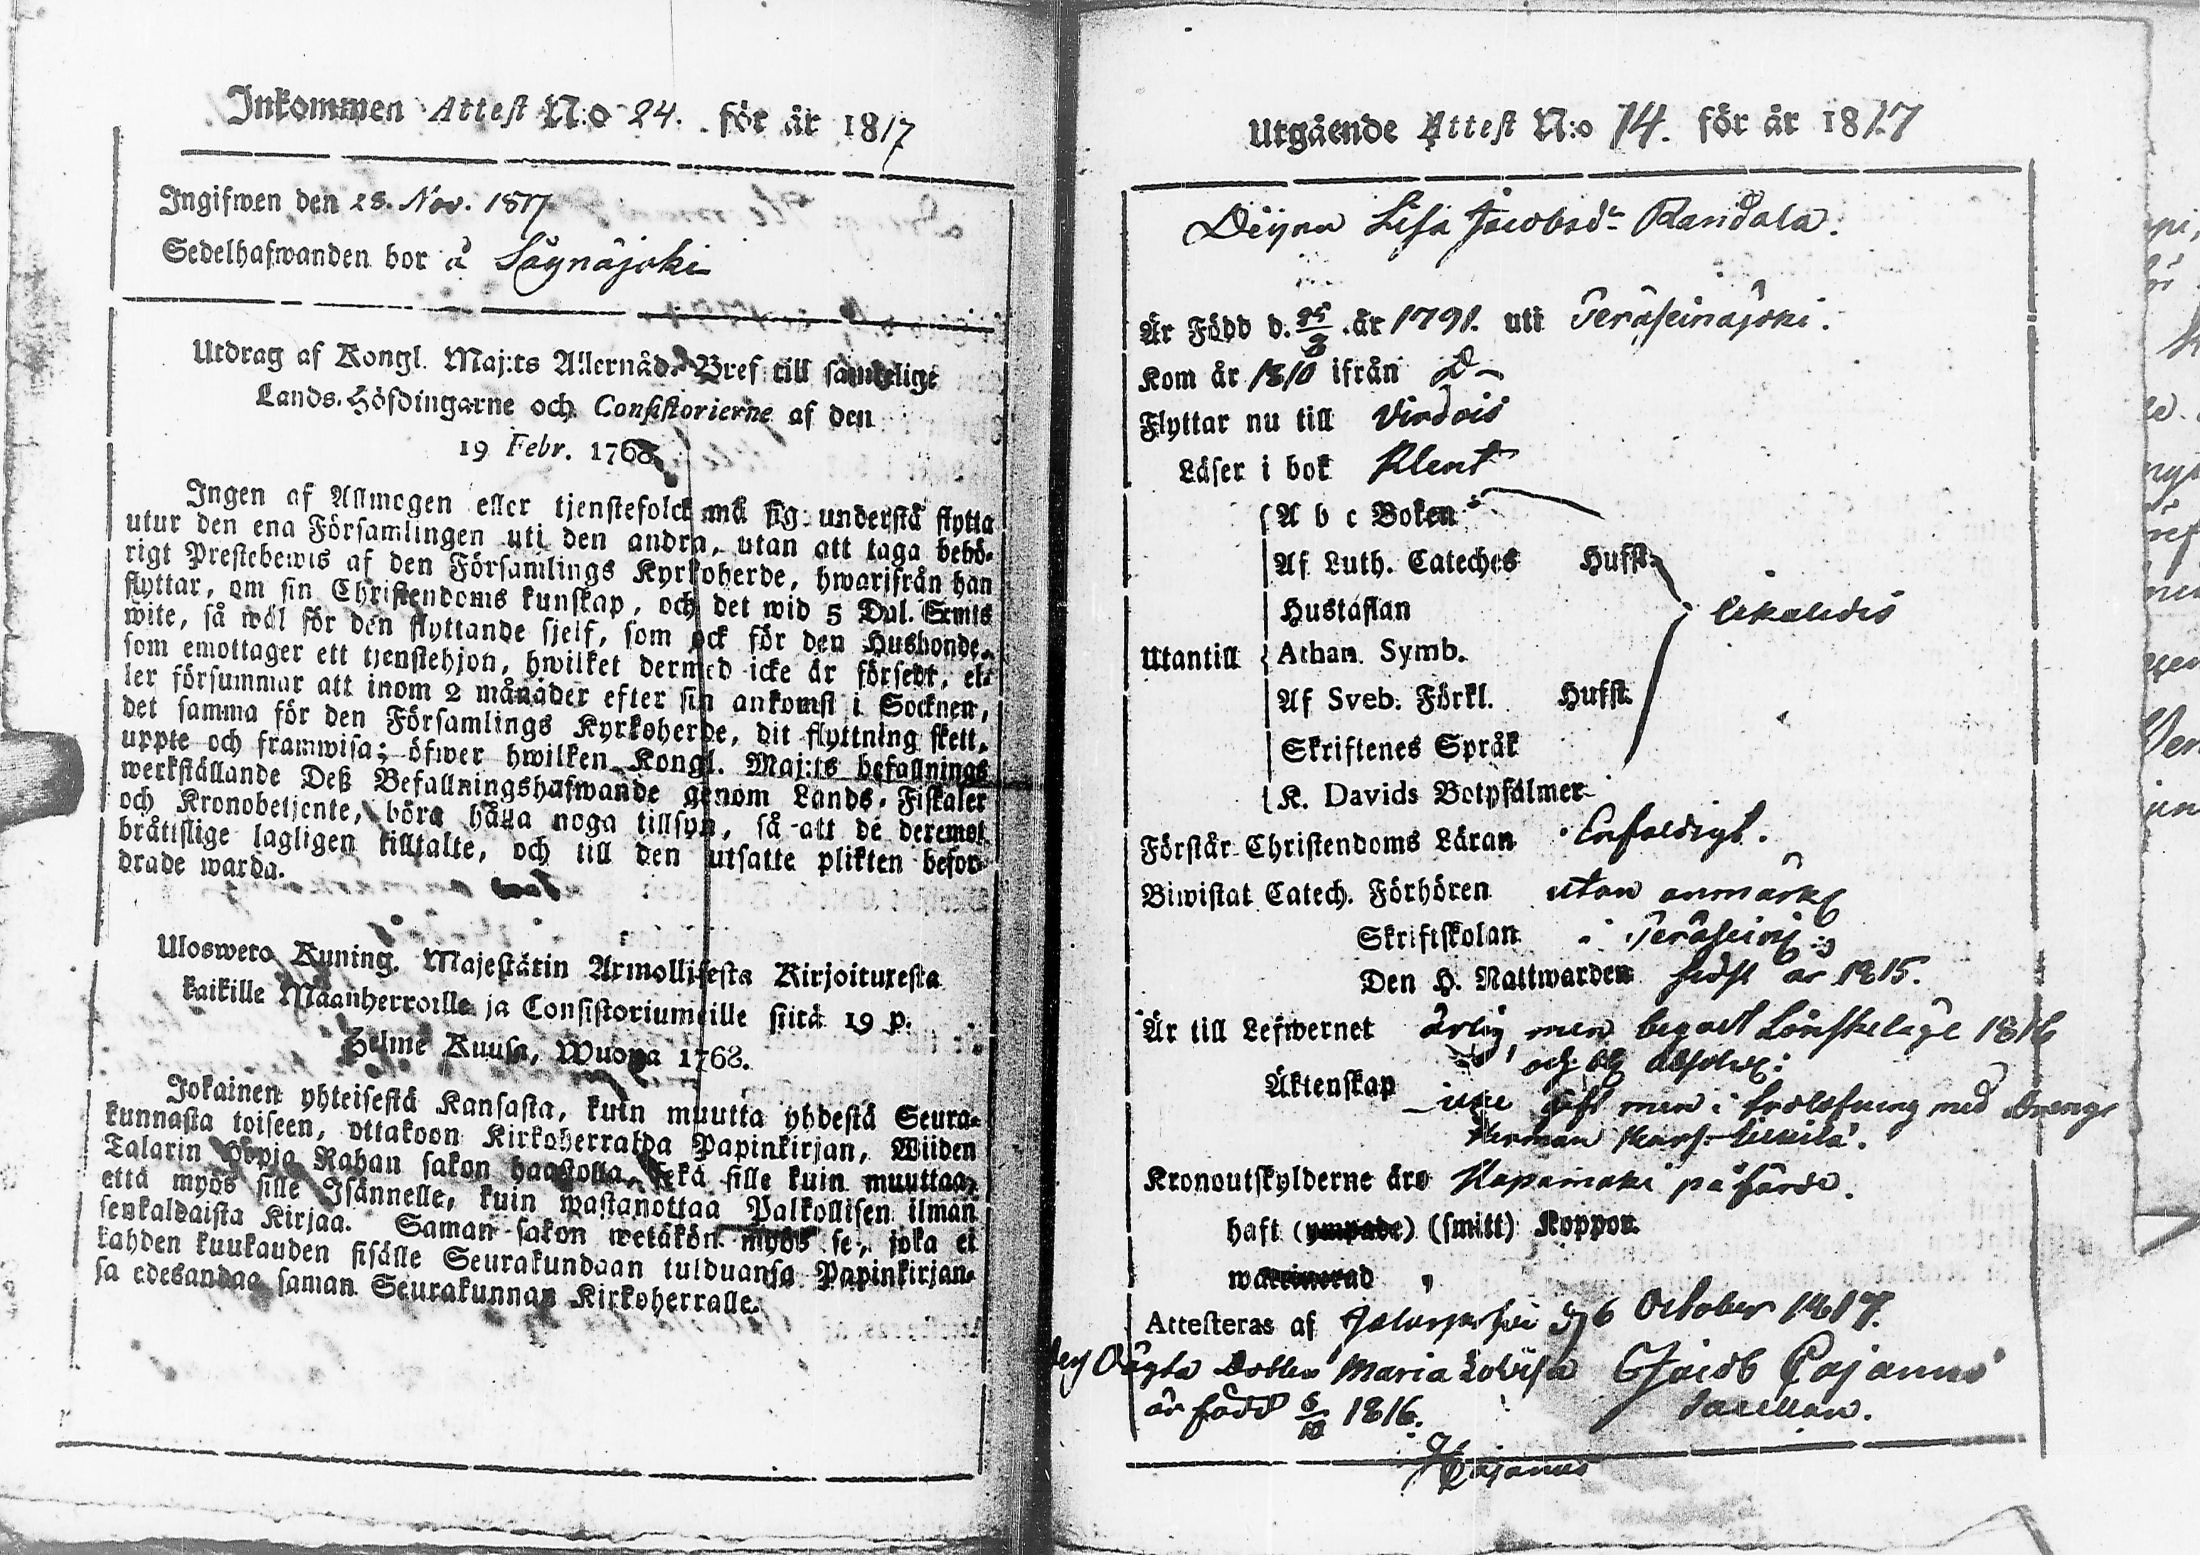 Inkommen Attest N:o 24. för år 1817
Ingifwen den 28. Nov. 1817
Sedelhafwanden bor å Säynäjoki
Utdrag af Kongl. Maj:ts Allernåd. Bref till samtelige
Lands-Höfdingarne och Consistorierne af den
19 Febr. 1768.
Ingen af Allmogen eller tjenstefolck må sig understå flytta
utur den ena Församlingen uti den andra, utan att taga behö-
rigt Prestebewis af den Församlings Kyrkoherde, hwarifrån han
flyttar, om sin Christendoms kunskap, och det wid 5 Dal. Smts
wite, så wäl för den flyttande sjelf, som ock för den Husbonde,
som emottager ett tjenstehjon, hwilket dermed icke är försedt, el-
ler försummar att inom 2 månader efter sin ankomst i Socknen,
det samma för den Församlings Kyrkoherde, dit flyttning skett,
uppte och framwisa; öfwer hwilken Kongl. Maj:ts befallnings
werkställande Deß Befallningshafwande genom Lands-Fiskaler
och Kronobetjente, böra hålla noga tillsyn, så att de deremot
bråttslige lagligen tilltalte, och till den utsatte plikten befor-
drade warda.
Uloswero Kuning. Majestätin Armollisesta Kirjoituxesta
kaikille Maanherroille ja Consistoriumeille siitä 19 p.
Helme Kuusa, Wuona 1768.
Jokainen yhteisestä Kansasta, kuin muutta yhdestä Seura-
kunnasta toiseen, ottakoon Kirkoherralda Papinkirjan, Wiiden
Talarin Hopia Rahan sakon haastolla, sekä sille kuin muuttaa,
että myös sille Isännelle, kuin wastanottaa Palkollisen ilman
senkaldaista Kirjaa. Saman sakon wetäkön myös se, joka ei
kahden kuukauden sisälle Seurakundaan tulduansa Papinkirjan-
sa edesandaa saman Seurakunnan Kirkoherralle.
Utgående Attest N:o 14. för år 1817
Lisa Jacobsd. Randala.
Är Född d. 25/3 år 1791. uti Peräseinäjoki.
Kom år 1810 ifrån D
Flyttar nu till Virdois
Läser i bok Klent
A b c Boken
Af Luth. Cateches Husfl.
Hustaflan likaledes
Utantill Athan. Symb.
Af Sveb. Förkl. Husfl.
Skriftenes Språk
K. Davids Botpsalmer
Förstår Christendoms Läran Enfaldigt.
Biwistat Catech. Förhören utan anmärkn
Skriftskolan i Peräseinj
Den H. Nattwarden sidst år 1815.
Är till Lefwernet ärlig, men begått Lönskeläge 1816
och bl. absolv:
Äktenskap icke gift men i trolofning med Drenge
Herman
Kronoutskylderne äro påförde.
haft (ympade) (smitt) Koppor.
waccinerad
Attesteras af d 6 October 1817.
Oägta Dotter Maria Lovisa Jacob Cajanus
är född 5/10 1816. Sacellan.
Cajanus